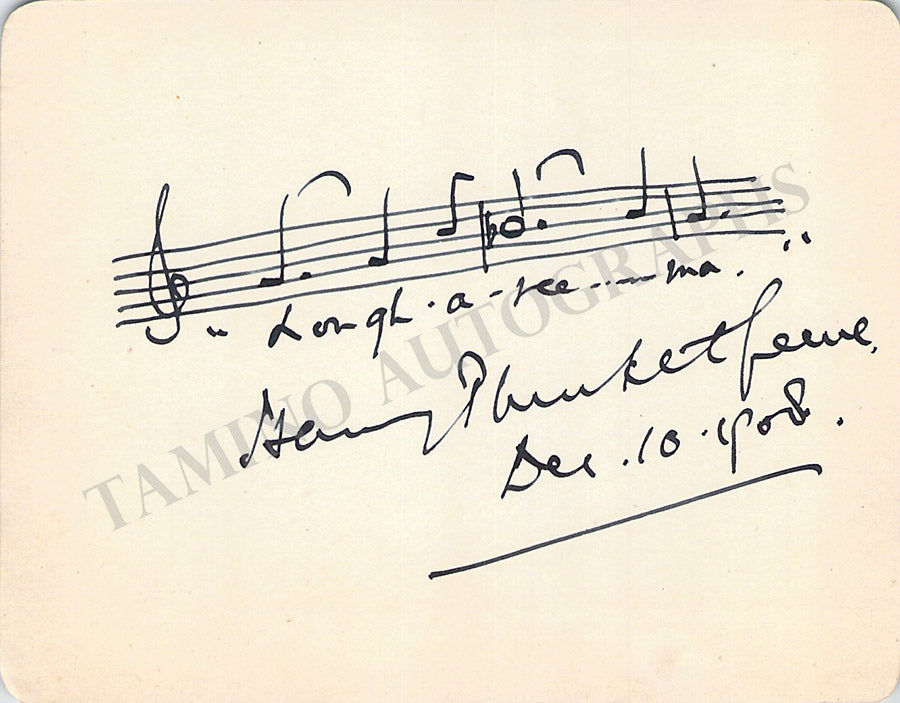 "Lough-a-ree----ma."
Harry Plunket Greene.
Dec. 10. 1908.
TAMINO AUTOGRAPHS